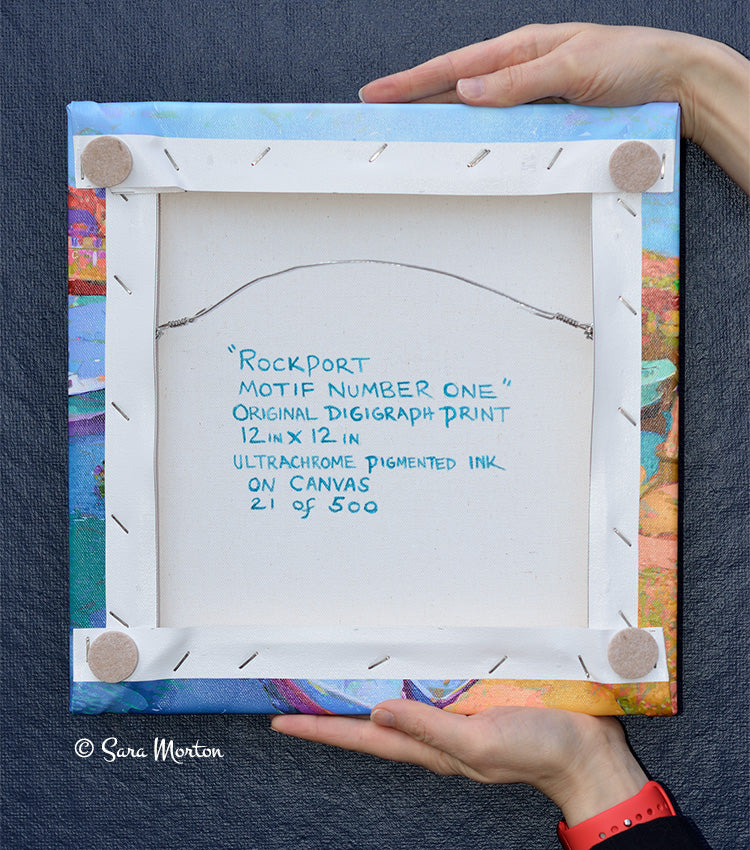 "ROCKPORT
MOTIF NUMBER ONE"
ORIGINAL DIGIGRAPH PRINT
12 IN X 12 IN
ULTRACHROME PIGMENTED INK
ON CANVAS
21 of 500
© Sara Morton